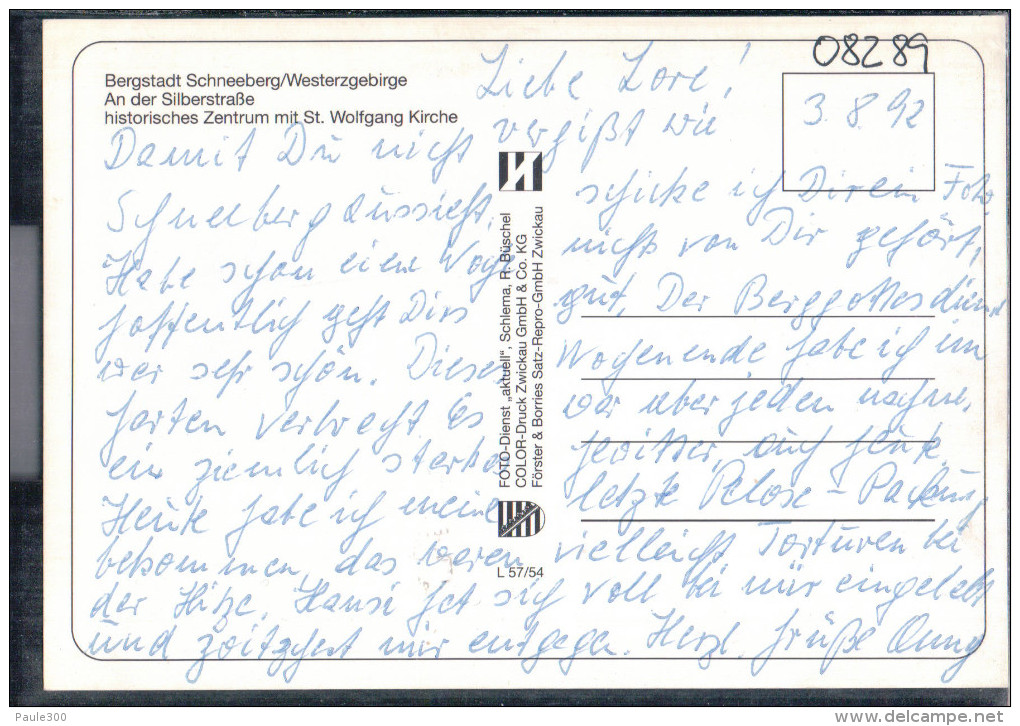 08289
3. 8. 92
Bergstadt Schneeberg/Westerzgebirge
An der Silberstraße
historisches Zentrum mit St. Wolfgang Kirche
Liebe Lore!
Damit Du nicht vergißt wie
Schneeberg aussieht, schicke ich Dir ein Foto.
Habe schon eine Woche nichts von Dir gehört,
hoffentlich geht Dirs gut. Der Berggottesdienst
war sehr schön. Dieses Wochenende habe ich im
Garten verbracht. Es war aber jeden nachm.
ein ziemlich starkes Gewitter, auch heute.
Heute habe ich meine letzte Pelose-Packung
bekommen, das waren vielleicht Torturen bei
der Hitze. Hansi hat sich voll bei mir eingelebt
und zwitschert mir entgegen. Herzl. Grüße
FOTO-Dienst „aktuell", Schlema, R. Büschel
COLOR-Druck Zwickau GmbH & Co. KG
Förster & Borries Satz-Repro-GmbH Zwickau
L 57/54
Paule300
www.delcampe.net